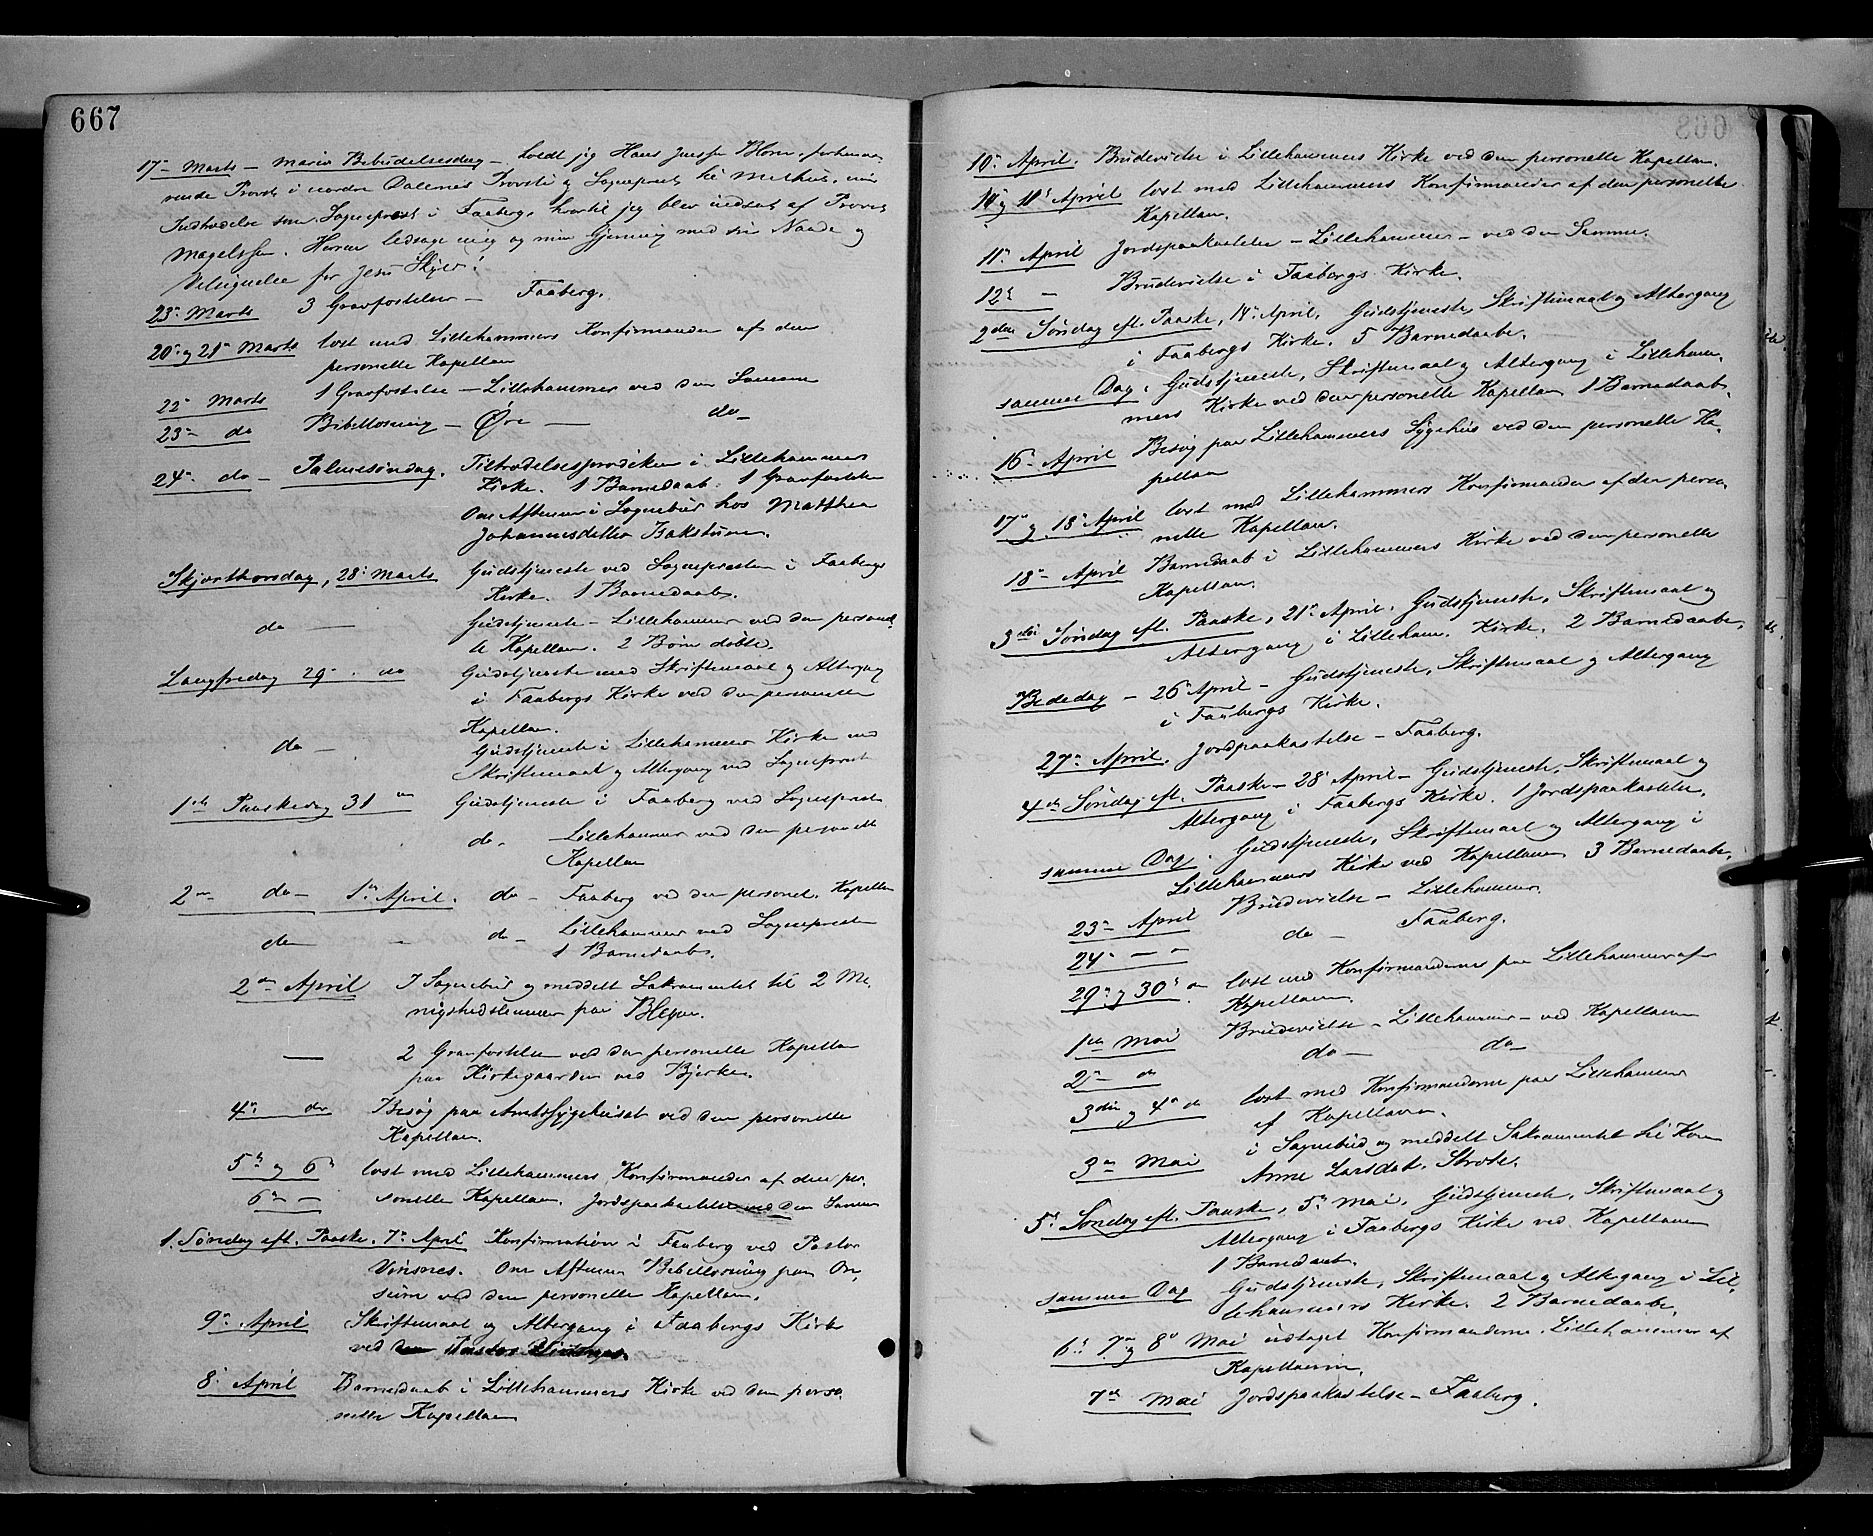 667
17de Marts - Mariæ Bebudelsesdag - holdt jeg Hans Jensen Blom, forhenvæ-
rende Provst i nordre Dalernes Provsti og Sogneprest til Melhus, min
Indtrædelse som Sogneprest i Faaberg, hvortil jeg blev indsat af Provst
Magelssen. Herren ledsage mig og min Gjerning med sin Naade og
Velsignelse for Jesu Skyld!
23de Marts 3 Gravfæstelser - Faaberg.
20de og 21de Marts læst med Lillehammers Konfirmander af den
personelle Kapellan
22de Marts 1 Gravfæstelse - Lillehammer ved den Samme
23de do Bibellæsning - Øre - do -
24de do - Palmesøndag. Tiltrædelsesprædiken i Lillehammers
Kirke. 1 Barnedaab. 1 Gravfæstelse
Om Aftenen i Sognebud hos Matthea
Johannesdatter Bakstuen.
Skjærthorsdag, 28de Marts Gudstjeneste ved Sognepresten i Faabergs
Kirke. 1 Barnedaab.
do - Gudstjeneste - Lillehammer ved den personel-
le Kapellan. 2 Børn døbte.
Langfredag 29de do Gudstjeneste med Skriftemaal og Altergang
i Faabergs Kirke ved den personelle
Kapellan.
do - Gudstjeneste i Lillehammer Kirke med
Skriftemaal og Altergang ved Sognepresten
1ste Paaskedag 31 Gudstjeneste i Faaberg ved Sognepresten
do. Lillehammer ved den personelle
Kapellan
2den do - 1ste April. do - Faaberg ved den personel. Kapellan
do - do - Lillehammer ved Sognepresten
1 Barnedaab.
2den April I Sognebud og meddelt Sakramentet til 2 Me-
nighedslemmer paa
— 2 Gravfæstelser ved den personelle Kapellan
paa Kirkegaarden ved Bjerke.
4de do Besøg paa Amtssygehuset ved den personelle
Kapellan.
5te og 6te læst med Lillehammers Konfirmander af den per-
6te - sonelle Kapellan. Jordspaakastelse ved den Samme
1. Søndag eft. Paaske. 7de April Konfirmation i Faaberg ved Pastor
Vinsnes. Om Aftenen Bibellæsning paa
ved den personelle Kapellan.
9de April Skriftemaal og Altergang i Faabergs Kirke
ved Pastor Vinsnes.
8de April Barnedaab i Lillehammers Kirke ved den perso-
nelle Kapellan
668
10de April. Brudevielse i Lillehammers Kirke ved den personelle Kapellan.
10 og 11te April læst med Lillehammers Konfirmander af den personelle
Kapellan.
11te April Jordspaakastelse - Lillehammer - ved den Samme.
12te - Brudevielse i Faabergs Kirke.
2den Søndag eft. Paaske, 14de April. Gudstjeneste, Skriftemaal og Altergang
i Faabergs Kirke. 5 Barnedaabe.
samme Dag. Gudstjeneste, Skriftemaal og Altergang i Lilleham-
mers Kirke ved den personelle Kapellan 1 Barnedaab.
16de April Besøg paa Lillehammers Sygehus ved den personelle Ka-
pellan
17de og 18de April læst med Lillehammers Konfirmander af den perso-
nelle Kapellan.
18de April Barnedaab i Lillehammers Kirke ved den personelle
Kapellan.
3die Søndag eft. Paaske, 21de April. Gudstjeneste, Skriftemaal og
Altergang i Lilleham. Kirke. 2 Barnedaabe.
Bededag - 26 April - Gudstjeneste, Skriftemaal og Altergang
i Faabergs Kirke.
27de April. Jordpaakastelse - Faaberg.
4de Søndag eft. Paaske - 28de April - Gudstjeneste, Skriftemaal og
Altergang i Faabergs Kirke. 1 Jordspaakastelse.
samme Dag. Gudstjeneste, Skriftemaal og Altergang i
Lillehammers Kirke ved Kapellanen 3 Barnedaabe.
23de April Brudevielse - Lillehammer.
24de - - do - Faaberg.
29de og 30te læst med Konfirmanderne paa Lillehammer af
Kapellanen.
1ste Mai Brudevielse - Lillehammer - ved Kapellanen
2den do do - do -
3die og 4de do læst med Konfirmanderne paa Lillehammer
af Kapellanen.
3die Mai i Sognebud og meddelt Sakramentet til Kone
Anne Larsdat.
5te Søndag eft. Paaske, 5te Mai. Gudstjeneste, Skriftemaal og
Altergang i Faabergs Kirke ved Kapellanen
1 Barnedaab.
samme Dag Gudstjeneste, Skriftemaal og Altergang i Lil-
lehammers Kirke. 2 Barnedaabe.
6te 7de og 8de Mai udtaget Konfirmanderne. Lillehammer af
Kapellanen.
7de Mai Jordspaakastelse - Faaberg.